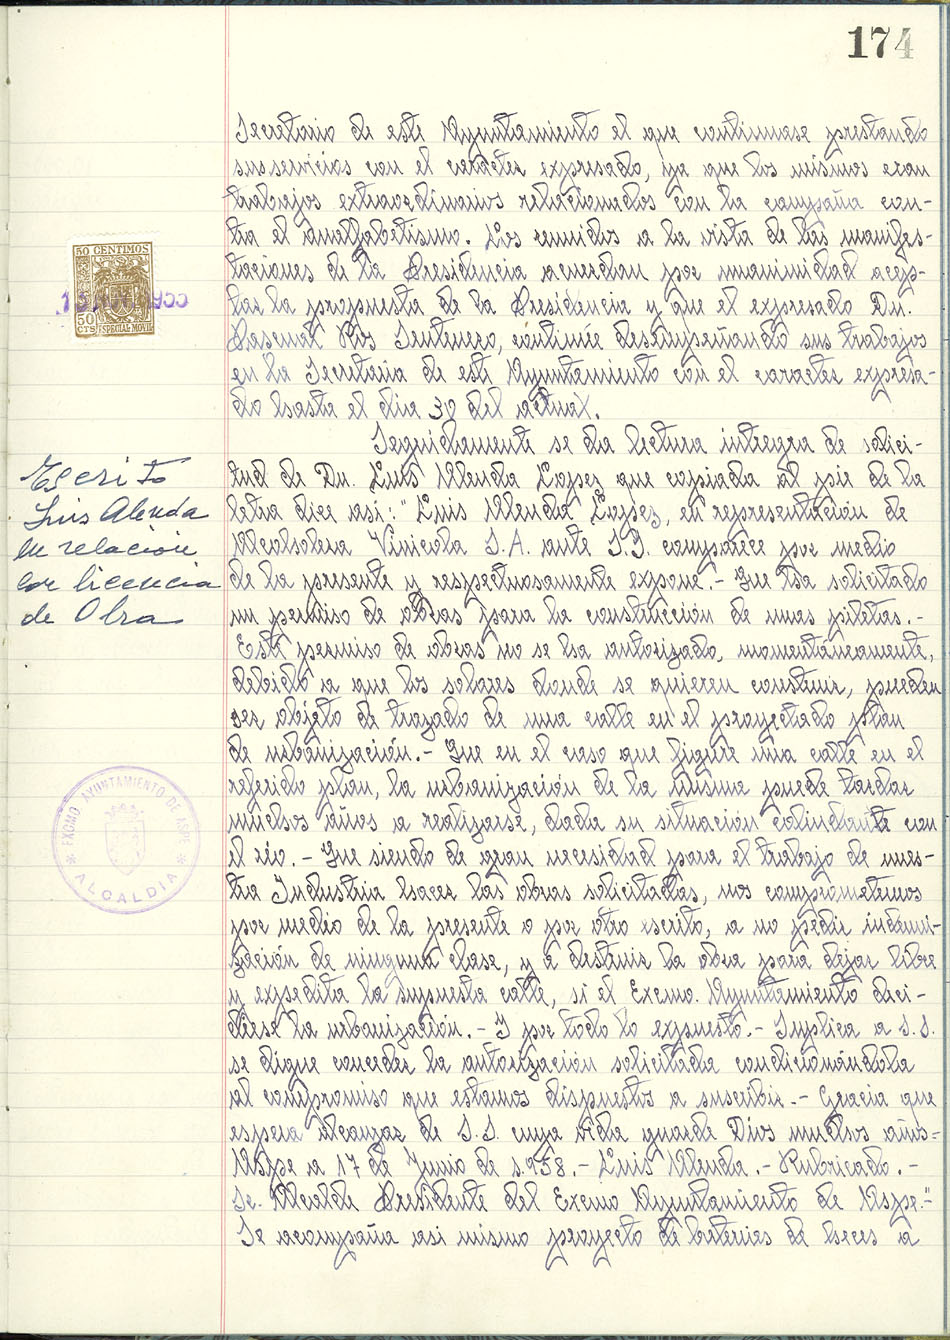 174
Secretario de este Ayuntamiento el que continuase prestando
sus servicios con el caracter expresado, ya que los mismos eran
trabajos extraordinarios relacionados con la campaña con-
tra el analfabetismo. Los reunidos a la vista de las manifes-
taciones de la Presidencia acuerdan por unanimidad acep-
tar la propuesta de la Presidencia y que el expresado Dn.
Pascual Ros Sentenero, continúe desempeñando sus trabajos
en la Secretaria de este Ayuntamiento con el caracter expresa-
do hasta el dia 30 del actual.
50 CENTIMOS
1955
50
CTS ESPECIAL MOVIL
Escrito
Luis Alenda
en relacion
con licencia
de Obra
Seguidamente se da lectura integra de solici-
tud de Dn. Luis Alenda Lopez que copiada al pie de la
letra dice asi: "Luis Alenda Lopez, en representación de
Alcoholera Vinicola S.A. ante S.S. comparece por medio
de la presente y respetuosamente expone.- Que ha solicitado
un permiso de obras para la construcción de unas piletas.-
Este permiso de obras no se ha autorizado, momentáneamente,
debido a que los solares donde se quieren construir, pueden
ser objeto de trazado de una calle en el proyectado plan
de urbanización.- Que en el caso que figure una calle en el
referido plan, la urbanización de la misma puede tardar
muchos años a realizarse, dada su situación colindante con
el rio.- Que siendo de gran necesidad para el trabajo de nues-
tra Industria hacer las obras solicitadas, nos comprometemos
por medio de la presente o por otro escrito, a no pedir indemni-
zación de ninguna clase, y a destruir la obra para dejar libre
y expedita la supuesta calle, si el Excmo. Ayuntamiento deci-
diese la urbanización.- Y por todo lo expuesto.- Suplica a S.S.
se digne conceder la autorización solicitada condicionándola
al compromiso que estamos dispuestos a suscribir.- Gracia que
espera alcanzar de S.S. cuya vida guarde Dios muchos años=
Aspe a 17 de Junio de 1.958.- Luis Alenda.- Rubricado.-
Sr. Alcalde Presidente del Excmo Ayuntamiento de Aspe.-"
Se acompaña asi mismo proyecto de baterias de heces a
EXCMO. AYUNTAMIENTO DE ASPE * ALCALDIA *